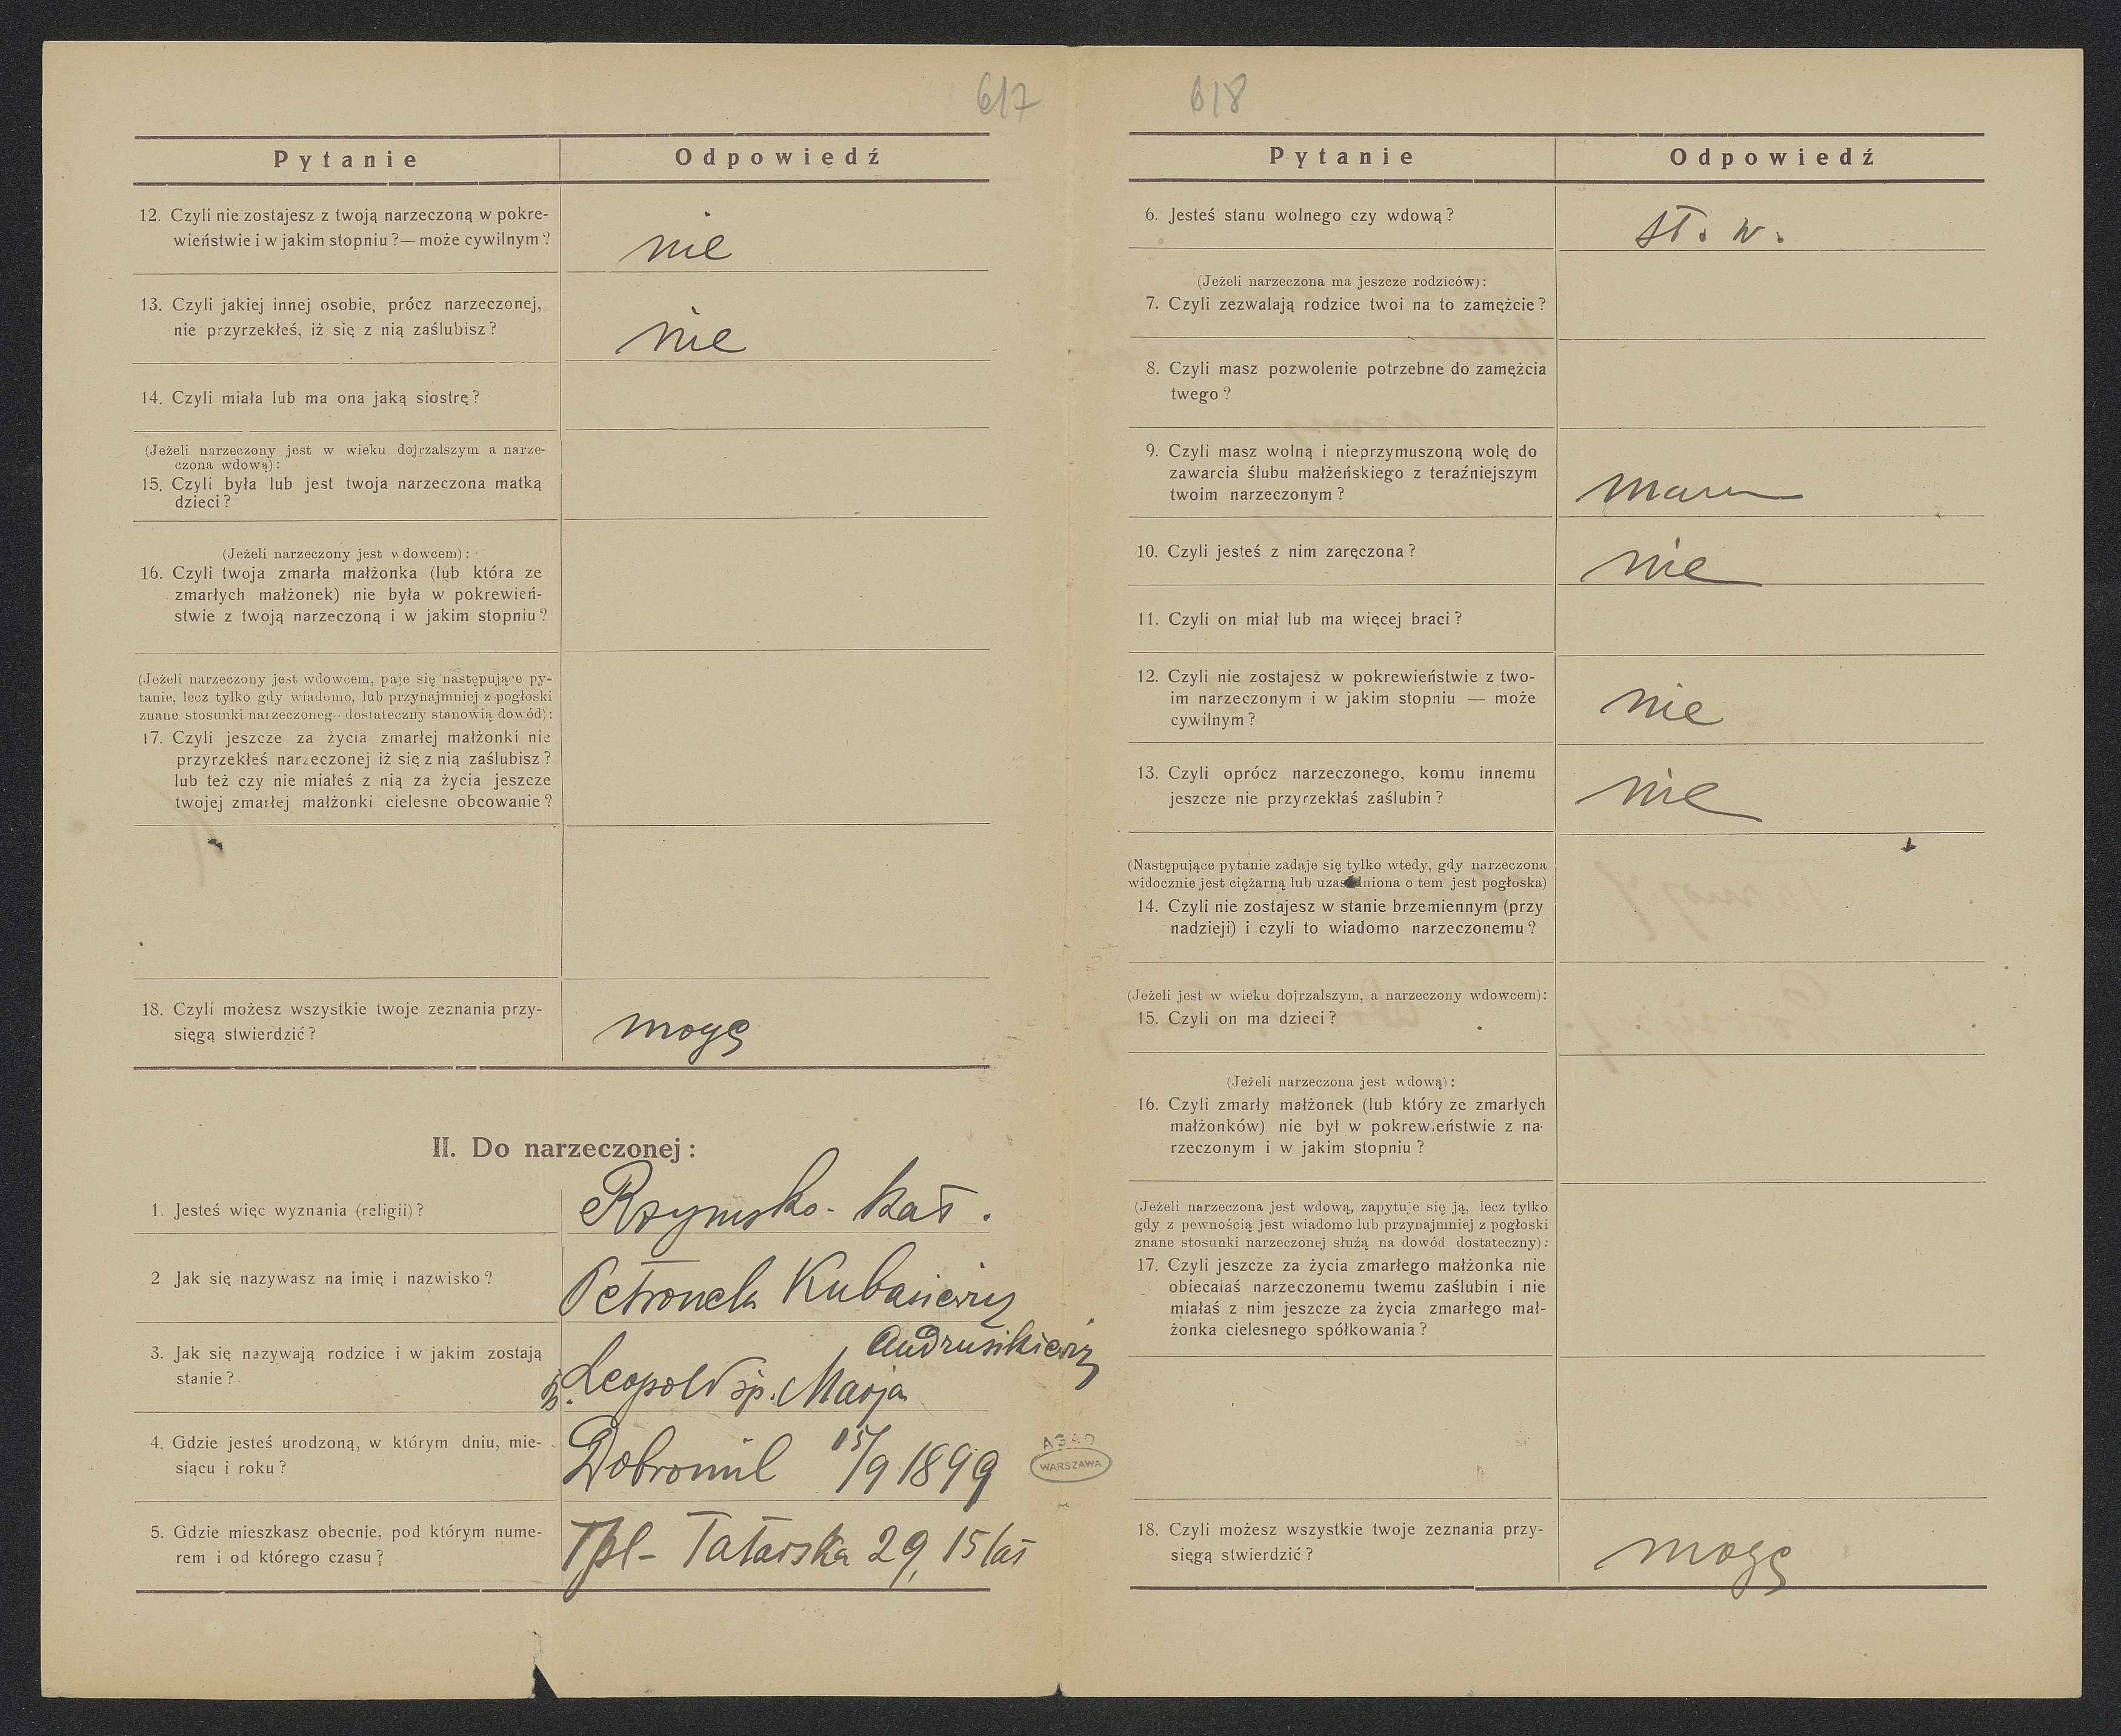 617
Pytanie Odpowiedź
12. Czyli nie zostajesz z twoją narzeczoną w pokre-
wieństwie i w jakim stopniu ?— może cywilnym ?
nie
13. Czyli jakiej innej osobie, prócz narzeczonej,
nie przyrzekłeś, iż się z nią zaślubisz ?
nie
14. Czyli miała lub ma ona jaką siostrę ?
(Jeżeli narzeczony jest w wieku dojrzalszym a narze-
czona wdową) :
15. Czyli była lub jest twoja narzeczona matką
dzieci ?
(Jeżeli narzeczony jest wdowcem) :
16. Czyli twoja zmarła małżonka (lub która ze
zmarłych małżonek) nie była w pokrewień-
stwie z twoją narzeczoną i w jakim stopniu ?
(Jeżeli narzeczony jest wdowcem, paje się następujące py-
tanie, lecz tylko gdy wiadomo, lub przynajmniej z pogłoski
znane stosunki narzeczoneg dostateczny stanowią dowód) :
17. Czyli jeszcze za życia zmarłej małżonki nie
przyrzekłeś narzeczonej iż się z nią zaślubisz ?
lub też czy nie miałeś z nią za życia jeszcze
twojej zmarłej małżonki cielesne obcowanie ?
18. Czyli możesz wszystkie twoje zeznania przy-
sięgą stwierdzić ?
mogę
II. Do narzeczonej :
1. Jesteś więc wyznania (religii) ?
Rzymsko-kat.
2 Jak się nazywasz na imię i nazwisko ?
Petronela Kubasiewicz
3. Jak się nazywają rodzice i w jakim zostają
stanie ?
Andrusikiewicz
śp. Leopold śp. Marja
4. Gdzie jesteś urodzoną, w którym dniu, mie-
siącu i roku ?
Dobromil 15/9 1899
5. Gdzie mieszkasz obecnie, pod którym nume-
rem i od którego czasu ?
Tpl- Tatarska 29, 15 lat
AGAD
WARSZAWA
618
Pytanie Odpowiedź
6. Jesteś stanu wolnego czy wdową ?
st. w.
(Jeżeli narzeczona ma jeszcze rodziców) :
7. Czyli zezwalają rodzice twoi na to zamężcie ?
8. Czyli masz pozwolenie potrzebne do zamężcia
twego ?
9. Czyli masz wolną i nieprzymuszoną wolę do
zawarcia ślubu małżeńskiego z teraźniejszym
twoim narzeczonym ?
mam
10. Czyli jesteś z nim zaręczona ?
nie
11. Czyli on miał lub ma więcej braci ?
12. Czyli nie zostajesż w pokrewieństwie z two-
im narzeczonym i w jakim stopniu — może
cywilnym ?
nie
13. Czyli oprócz narzeczonego, komu innemu
jeszcze nie przyrzekłaś zaślubin ?
nie
(Następujące pytanie zadaje się tylko wtedy, gdy narzeczona
widocznie jest ciężarną lub uzasadniona o tem jest pogłoska)
14. Czyli nie zostajesz w stanie brzemiennym (przy
nadzieji) i czyli to wiadomo narzeczonemu ?
(Jeżeli jest w wieku dojrzalszym, a narzeczony wdowcem) :
15. Czyli on ma dzieci ?
(Jeżeli narzeczona jest wdową) :
16. Czyli zmarły małżonek (lub który ze zmarłych
małżonków) nie był w pokrewieństwie z na-
rzeczonym i w jakim stopniu ?
(Jeżeli narzeczona jest wdową, zapytuje się ją, lecz tylko
gdy z pewnością jest wiadomo lub przynajmniej z pogłoski
znane stosunki narzeczonej służą na dowód dostateczny) :
17. Czyli jeszcze za życia zmarłego małżonka nie
obiecałaś narzeczonemu twemu zaślubin i nie
miałaś z nim jeszcze za życia zmarłego mał-
żonka cielesnego spółkowania ?
18. Czyli możesz wszystkie twoje zeznania przy-
sięgą stwierdzić ?
mogę